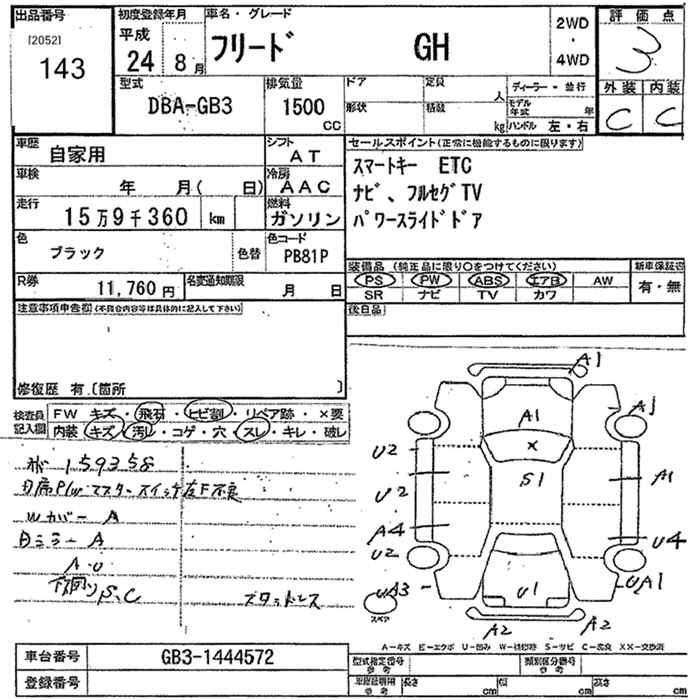 出品番号
[2052]
143
初度登録年月
平成
24 8月
車名・グレード
フリード GH
2WD
・
4WD
評価点
3
外装 内装
C C
型式
DBA-GB3
排気量
1500
CC
ドア 定員
人
形状 積載
kg
ディーラー・並行
モデル年式 年
ハンドル 左・右
車歴
自家用
シフト
AT
車検
年 月( 日)
冷房
AAC
走行
15万9千360 km
燃料
ガソリン
色
ブラック
色替
色コード
PB81P
R券
11,760 円
名変通知期限
月 日
セールスポイント(正常に機能するものに限ります)
スマートキー ETC
ナビ、フルセグTV
パワースライドドア
装備品 (純正品に限り○をつけてください)
新車保証書
PS PW ABS エアB AW
有・無
SR ナビ TV カワ
後日品
注意事項申告欄(不具合内容等は具体的に記入して下さい)
修復歴 有.〔箇所 〕
検査員記入欄
FW キズ・飛石・ヒビ割・リペア跡・×要
内装 キズ・汚レ・コゲ・穴・スレ・キレ・破レ
159358
P/Wマスタースイッチ左F不良
Wカバー A
ミラー A
A・U
下回りS、C
スタットレス
A1
A1
A1
X
S1
U2
U2
A1
A4
U2
U4
A3
UA1
U1
A2
A2
スペア
A-キズ E-エクボ U-凹み W-補修跡 S-サビ C-腐食 XX-交換済
車台番号
GB3-1444572
登録番号
型式指定番号 参考
類別区分番号 参考
車庫証明用 参考
長さ cm
幅 cm
高さ cm